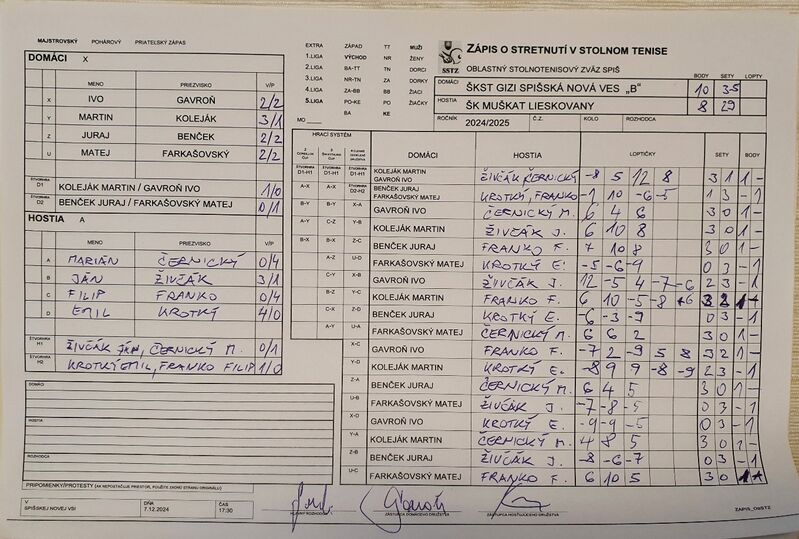 MAJSTROVSKÝ POHÁROVÝ PRIATEĽSKÝ ZÁPAS
DOMÁCI X
MENO PRIEZVISKO V/P
X IVO GAVROŇ 2/2
Y MARTIN KOLEJÁK 3/1
Z JURAJ BENČEK 2/2
U MATEJ FARKAŠOVSKÝ 2/2
ŠTVORHRA D1 KOLEJÁK MARTIN / GAVROŇ IVO 1/0
ŠTVORHRA D2 BENČEK JURAJ / FARKAŠOVSKÝ MATEJ 0/1
HOSTIA A
MENO PRIEZVISKO V/P
A MARIÁN ČERNICKÝ 0/4
B JÁN ŽIVČÁK 3/1
C FILIP FRANKO 0/4
D EMIL KROTKÝ 4/0
ŠTVORHRA H1 ŽIVČÁK JÁN, ČERNICKÝ M. 0/1
ŠTVORHRA H2 KROTKÝ EMIL, FRANKO FILIP 1/0
DOMÁCI
HOSTIA
ROZHODCA
PRIPOMIENKY/PROTESTY (AK NEPOSTAČUJE PRIESTOR, POUŽITE ZADNÚ STRANU ORIGINÁLU)
V SPIŠSKEJ NOVEJ VSI
DŇA 7.12.2024
ČAS 17:30
EXTRA ZÁPAD TT MUŽI
1.LIGA VÝCHOD NR ŽENY
2.LIGA BA-TT TN DORCI
3.LIGA NR-TN ZA DORKY
4.LIGA ZA-BB BB ŽIACI
5.LIGA PO-KE PO ŽIAČKY
MO BA KE
SSTZ
ZÁPIS O STRETNUTÍ V STOLNOM TENISE
OBLASTNÝ STOLNOTENISOVÝ ZVÄZ SPIŠ
BODY SETY LOPTY
DOMÁCI ŠKST GIZI SPIŠSKÁ NOVÁ VES „B" 10 35
HOSTIA ŠK MUŠKAT LIESKOVANY 8 29
ROČNÍK 2024/2025 Č.Z. KOLO ROZHODCA
HRACÍ SYSTÉM
DOMÁCI HOSTIA LOPTIČKY SETY BODY
D1-H1 D1-H1 D1-H1 KOLEJÁK MARTIN GAVROŇ IVO ŽIVČÁK ČERNICKÝ -8 5 12 8 3 1 1 -
A-X A-X D2-H2 BENČEK JURAJ FARKAŠOVSKÝ MATEJ KROTKÝ, FRANKO -1 10 -6 -5 1 3 - 1
B-Y B-Y X-A GAVROŇ IVO ČERNICKÝ M. 6 4 6 3 0 1 -
A-Y C-Z Y-B KOLEJÁK MARTIN ŽIVČÁK J. 6 10 8 3 0 1 -
B-X B-X Z-C BENČEK JURAJ FRANKO F. 7 10 8 3 0 1 -
A-Z U-D FARKAŠOVSKÝ MATEJ KROTKÝ E. -5 -6 -9 0 3 - 1
C-Y X-B GAVROŇ IVO ŽIVČÁK J. 12 -5 4 -7 -6 2 3 - 1
B-Z Y-C KOLEJÁK MARTIN FRANKO F. 6 10 -5 -8 6 3 2 1 -
C-X Z-D BENČEK JURAJ KROTKÝ E. -6 -3 -9 0 3 - 1
A-Y U-A FARKAŠOVSKÝ MATEJ ČERNICKÝ M. 6 6 2 3 0 1 -
X-C GAVROŇ IVO FRANKO F. -7 2 -9 5 8 3 2 1 -
Y-D KOLEJÁK MARTIN KROTKÝ E. -8 9 9 -8 -9 2 3 - 1
Z-A BENČEK JURAJ ČERNICKÝ M. 6 4 5 3 0 1 -
U-B FARKAŠOVSKÝ MATEJ ŽIVČÁK J. -7 -8 -5 0 3 - 1
X-D GAVROŇ IVO KROTKÝ E. -9 -9 -5 0 3 - 1
Y-A KOLEJÁK MARTIN ČERNICKÝ M. 4 8 5 3 0 1 -
Z-B BENČEK JURAJ ŽIVČÁK J. -8 -6 -7 0 3 - 1
U-C FARKAŠOVSKÝ MATEJ FRANKO F. 6 10 5 3 0 1
HLAVNÝ ROZHODCA
ZÁSTUPCA DOMÁCEHO DRUŽSTVA
ZÁSTUPCA HOSŤUJÚCEHO DRUŽSTVA
ZÁPIS_ObSTZ